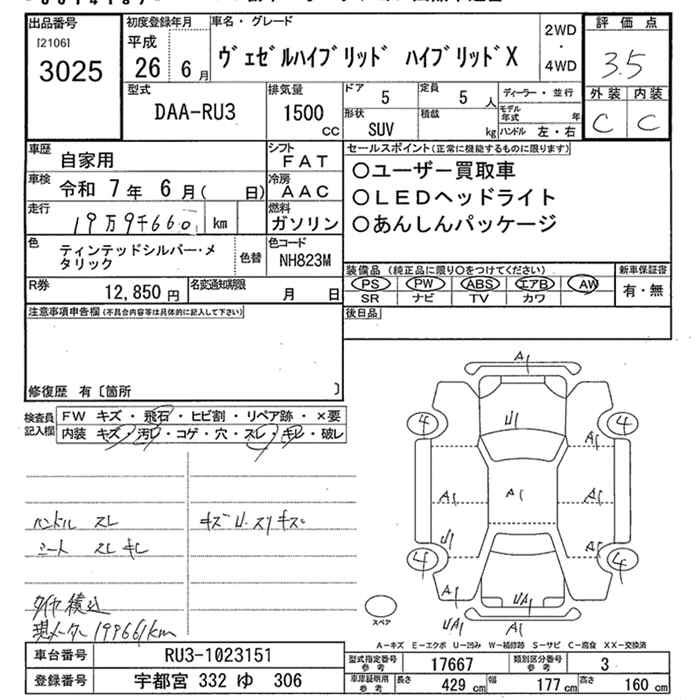 出品番号
[2106]
3025
初度登録年月
平成
26 6月
車名・グレード
ヴェゼルハイブリッド ハイブリッドX
2WD
・
4WD
評価点
3.5
外装 内装
C C
型式
DAA-RU3
排気量
1500
CC
ドア
5
定員
5人
形状
SUV
積載
kg
ディーラー・並行
モデル年式 年
ハンドル 左・右
車歴
自家用
シフト
FAT
車検
令和 7年 6月( 日)
冷房
AAC
走行
19万9千660 km
燃料
ガソリン
色
ティンテッドシルバー・メタリック
色替
色コード
NH823M
R券
12,850円
名変通知期限
月 日
セールスポイント(正常に機能するものに限ります)
○ユーザー買取車
○LEDヘッドライト
○あんしんパッケージ
装備品(純正品に限り○をつけてください)
PS PW ABS エアB AW
SR ナビ TV カワ
新車保証書
有・無
後日品
注意事項申告欄(不具合内容等は具体的に記入して下さい)
修復歴 有〔箇所 〕
検査員記入欄
FW キズ・飛石・ヒビ割・リペア跡・×要
内装 キズ・汚レ・コゲ・穴・スレ・キレ・破レ
ハンドル スレ
シート スレ キレ
キズ U.スリキズ
タイヤ積込
現メーター 199661km
A1
4 U1 4
A1
A1 A1 A1
U1 A1
4 4
A1 A1
UA1 UA1
スペア
A-キズ E-エクボ U-凹み W-補修跡 S-サビ C-腐食 XX-交換済
車台番号
RU3-1023151
登録番号
宇都宮 332 ゆ 306
型式指定番号 参考
17667
類別区分番号 参考
3
車庫証明用 参考
長さ 429 cm
幅 177 cm
高さ 160 cm